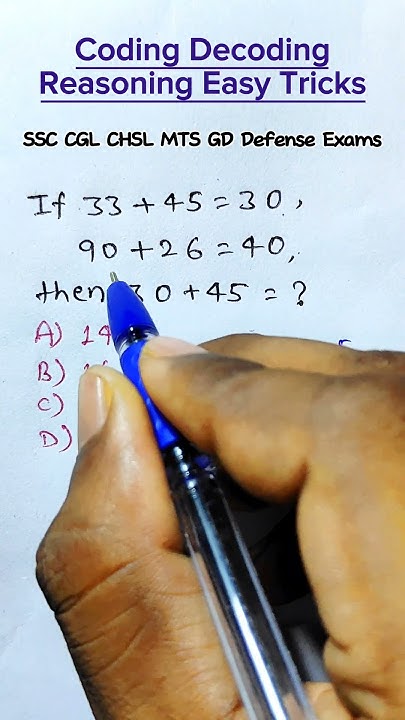 Coding Decoding
Reasoning Easy Tricks
SSC CGL CHSL MTS GD Defense Exams
If 33 + 45 = 30,
90 + 26 = 40,
then 0 + 45 = ?
A)
B)
C)
D)